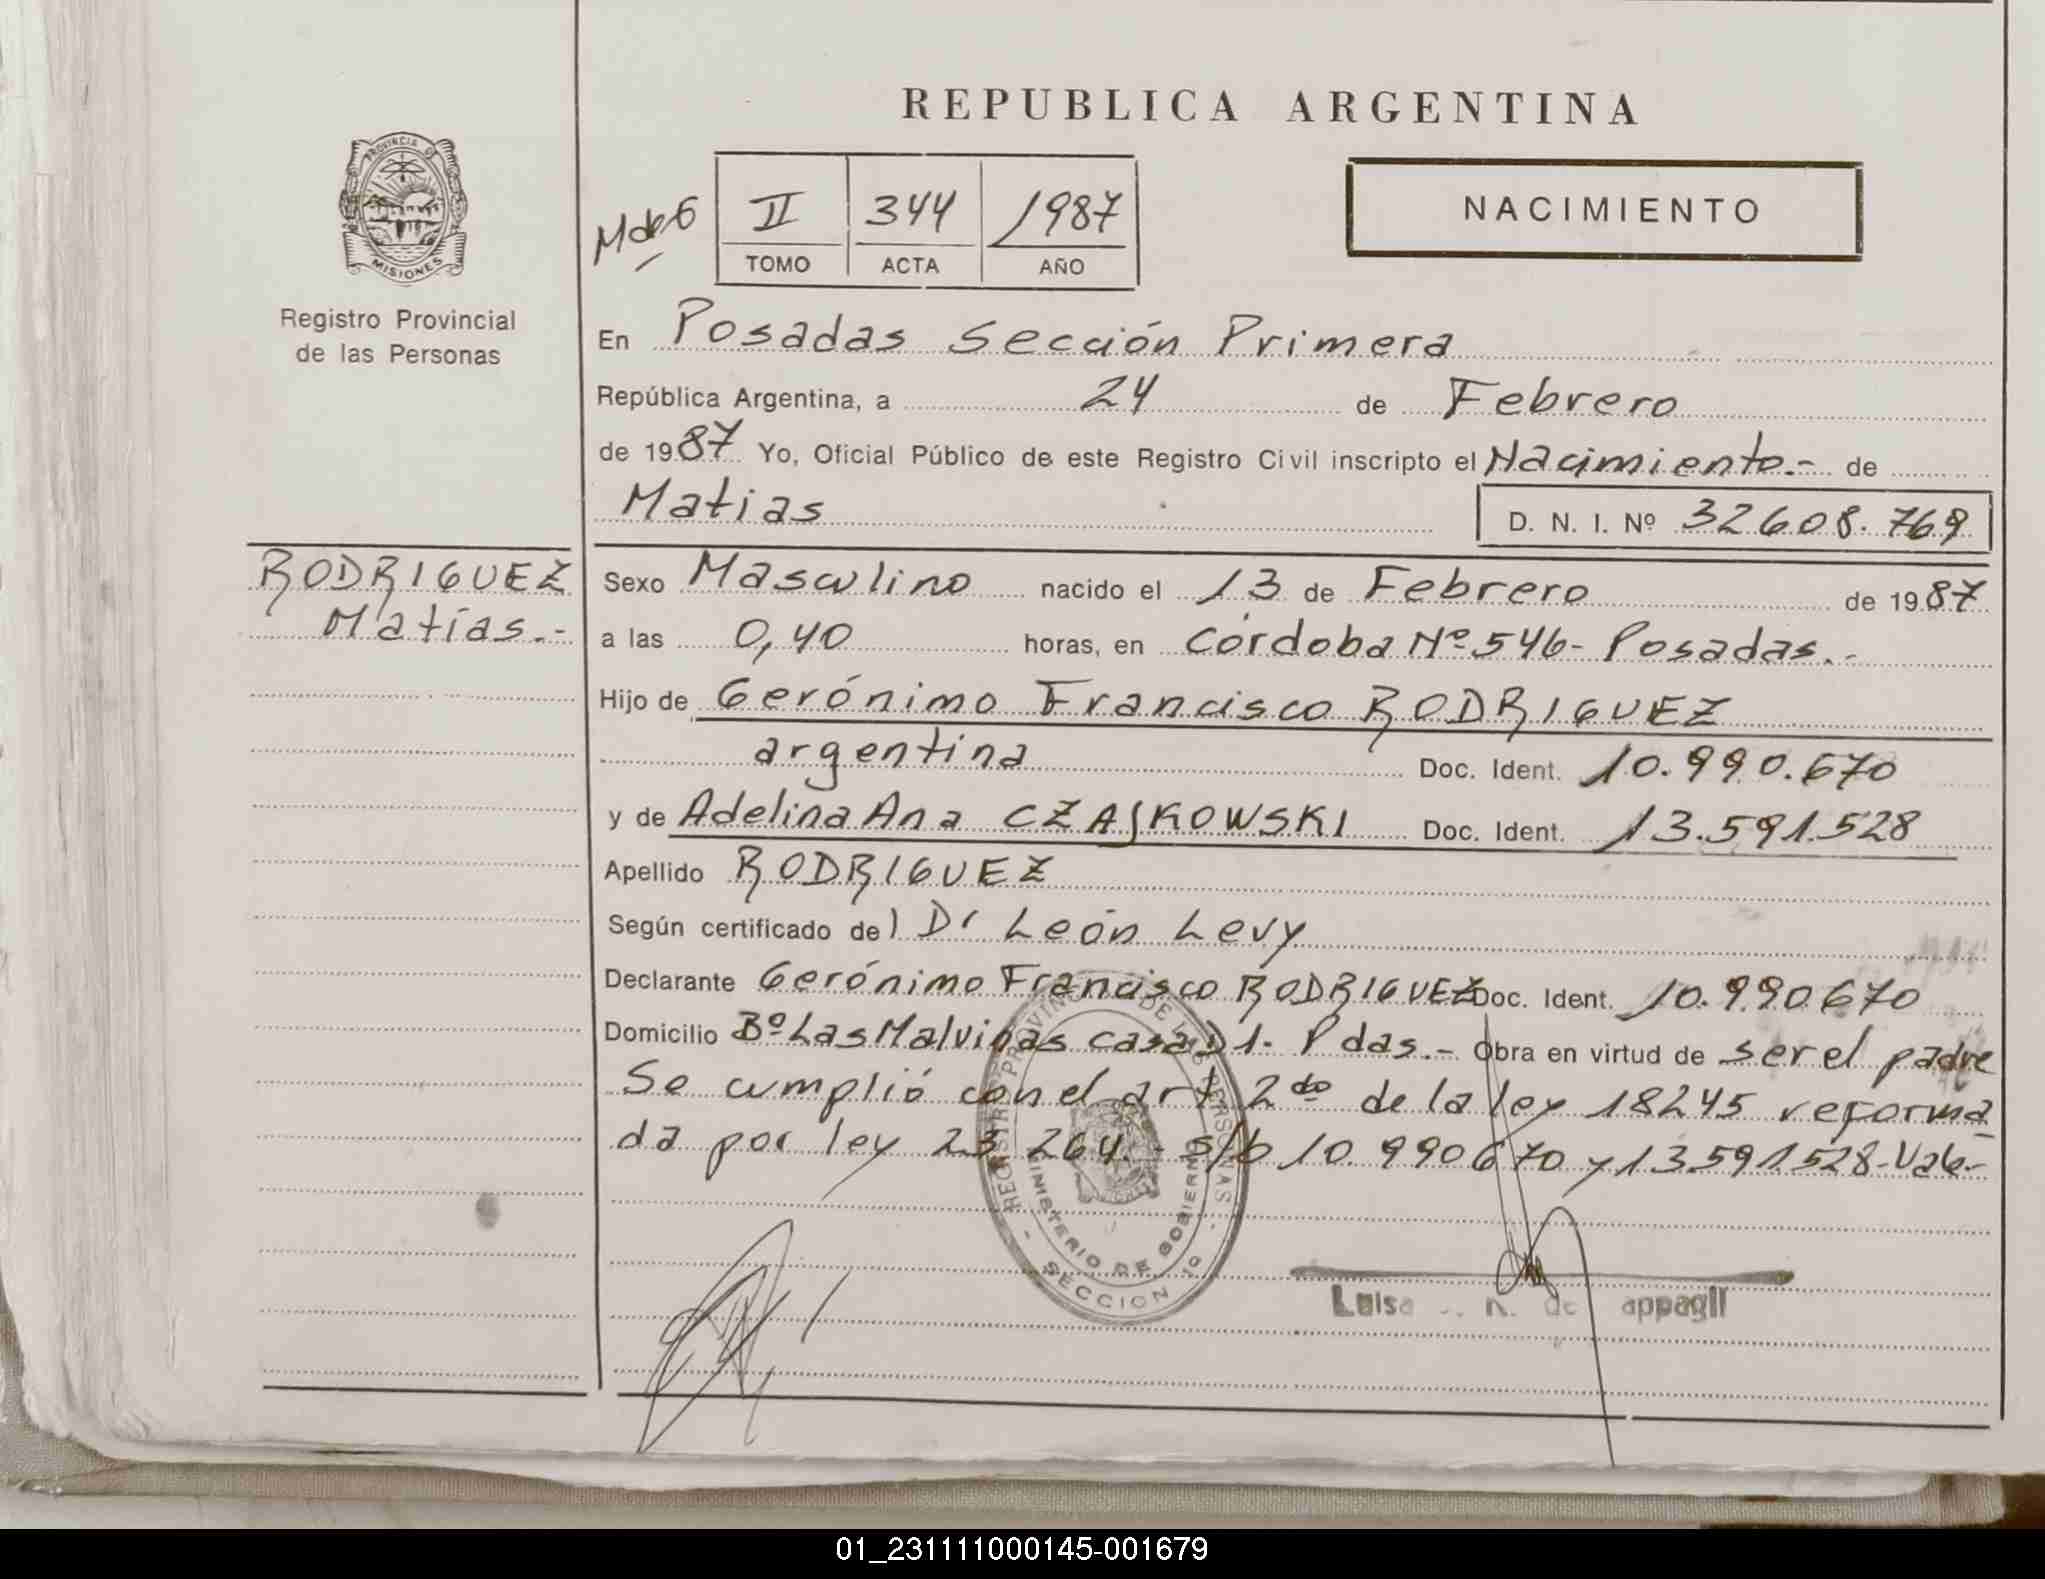 REPUBLICA ARGENTINA
PROVINCIA DE
MISIONES
Registro Provincial
de las Personas
II 344 1987
TOMO ACTA AÑO
NACIMIENTO
En Posadas Sección Primera
República Argentina, a 24 de Febrero
de 1987 Yo, Oficial Público de este Registro Civil inscripto el Nacimiento.- de
Matias
D. N. I. Nº 32608.769
RODRIGUEZ
Matías.-
Sexo Masculino nacido el 13 de Febrero de 1987
a las 0,40 horas, en Córdoba Nº 546- Posadas.-
Hijo de Gerónimo Francisco RODRIGUEZ
argentina Doc. Ident. 10.990.670
y de Adelina Ana CZAJKOWSKI Doc. Ident. 13.591.528
Apellido RODRIGUEZ
Según certificado de) Dr León Levy
Declarante Gerónimo Francisco RODRIGUEZ Doc. Ident. 10.990.670
Domicilio Bº Las Malvinas casa 1. Pdas.- Obra en virtud de ser el padre
Se cumplió con el art 2do de la ley 18245 reforma
da por ley 23 264.- s/b 10.990670 y 13591528-Vale-
REGISTRO PROVINCIAL DE LAS PERSONAS
MINISTERIO DE GOBIERNO
SECCION 1º
Luisa N. de appagli
01_231111000145-001679